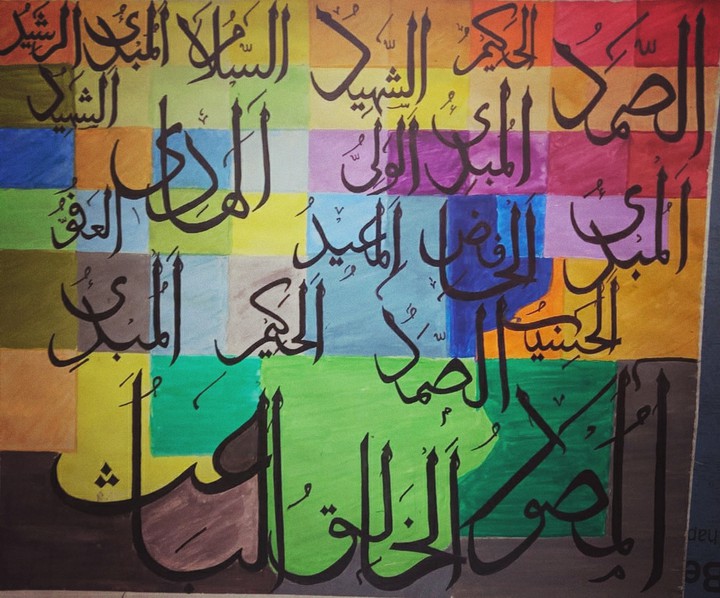 الصمد الحكيم الشهيد السلام المبدئ الرشيد
المبدئ الولي الهادي الشهيد
المبدئ الخافض المعيد العفو
الحكيم المبدئ
الصمد
الخالق الباعث